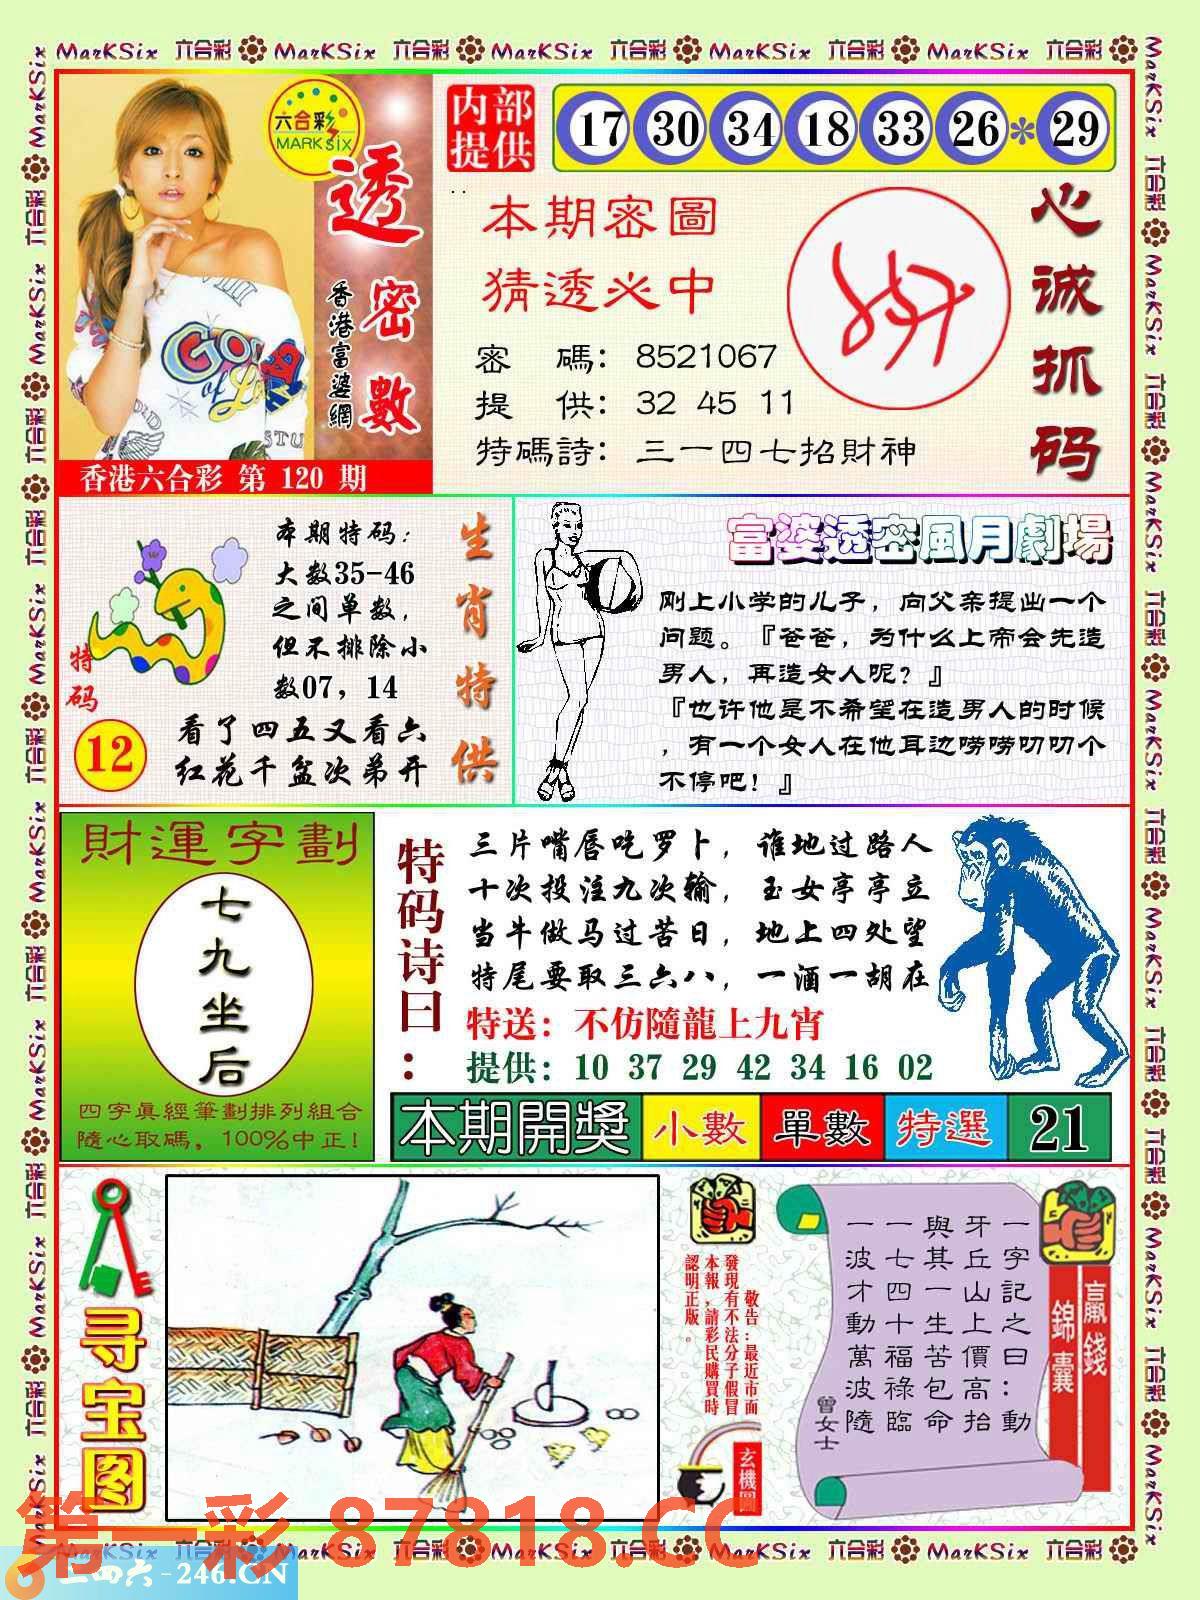 MarKSix 六合彩 MarKSix 六合彩 MarKSix 六合彩 MarKSix 六合彩 MarKSix 六合彩
六合彩
MARKSIX
透密數
香港富婆網
香港六合彩 第 120 期
内部提供
17 30 34 18 33 26 * 29
本期密圖
猜透必中
密 碼: 8521067
提 供: 32 45 11
特碼詩: 三一四七招財神
心诚抓码
本期特码:
大数35-46
之间单数,
但不排除小
数07, 14
生肖特供
特码
12
看了四五又看六
红花千盆次弟开
富婆透密風月劇場
刚上小学的儿子, 向父亲提出一个
问题。『爸爸, 为什么上帝会先造
男人, 再造女人呢? 』
『也许他是不希望在造男人的时候
, 有一个女人在他耳边唠唠叨叨个
不停吧! 』
財運字劃
七九坐后
四字真經筆劃排列組合
隨心取碼, 100%中正!
特码诗曰:
三片嘴唇吃罗卜, 谁地过路人
十次投注九次输, 玉女亭亭立
当牛做马过苦日, 地上四处望
特尾要取三六八, 一酒一胡在
特送: 不仿隨龍上九宵
提供: 10 37 29 42 34 16 02
本期開獎 小數 單數 特選 21
寻宝图
敬告:最近市面
發現有不法分子假冒
本報,請彩民購買時
認明正版。
玄機圖
一字記之曰:動
牙丘山上價高抬
與其一生苦包命
一七四十福祿臨
一波才動萬波隨
曾女士
贏錢
錦囊
第一彩 87818.CC
MarKSix 六合彩 MarKSix 六合彩 MarKSix 六合彩 MarKSix 六合彩 MarKSix 六合彩
-246.CN